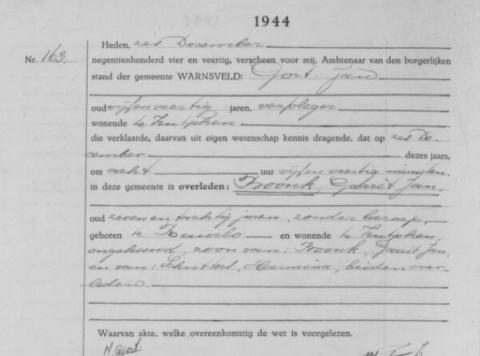 1944
Heden, zes December
Nr. 163. negentienhonderd vier en veertig, verscheen voor mij, Ambtenaar van den burgerlijken
stand der gemeente WARNSVELD: Gort, Jan
oud vijfenveertig jaren, verpleger
wonende te Zutphen
die verklaarde, daarvan uit eigen wetenschap kennis dragende, dat op zes De-
cember dezes jaars,
om acht uur vijfenveertig minuten,
in deze gemeente is overleden: Kroonk, Gerrit Jan,
oud zeven en tachtig jaren, zonder beroep,
geboren te Ruurlo en wonende te Zutphen,
ongehuwd, zoon van: Kroonk, Gerrit Jan,
en van: Harmina, beiden over-
leden.
Waarvan akte, welke overeenkomstig de wet is voorgelezen.